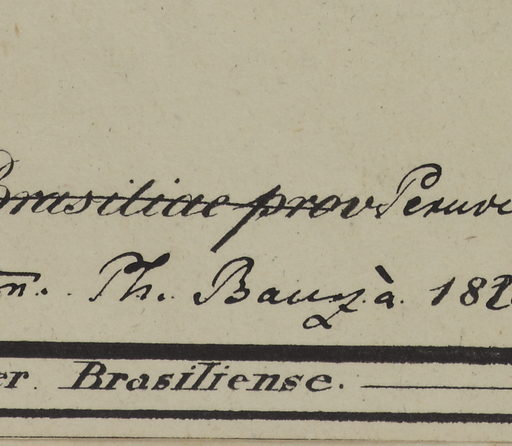 Brasiliae prov Peruvi
Ph. Bauzà 182
er. Brasiliense.